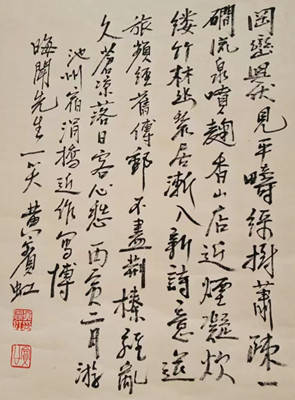 岡巒伏見平疇綠樹蕭疎一
磵流泉噴麴香山店近煙凝炊
縷竹林幽築居漸入新詩意逆
旅頻經舊傳郵不盡荊榛經亂
久蒼涼落日客心愁丙寅二月游
池州宿涓橋近作寫博
晦聞先生一笑黃賓虹